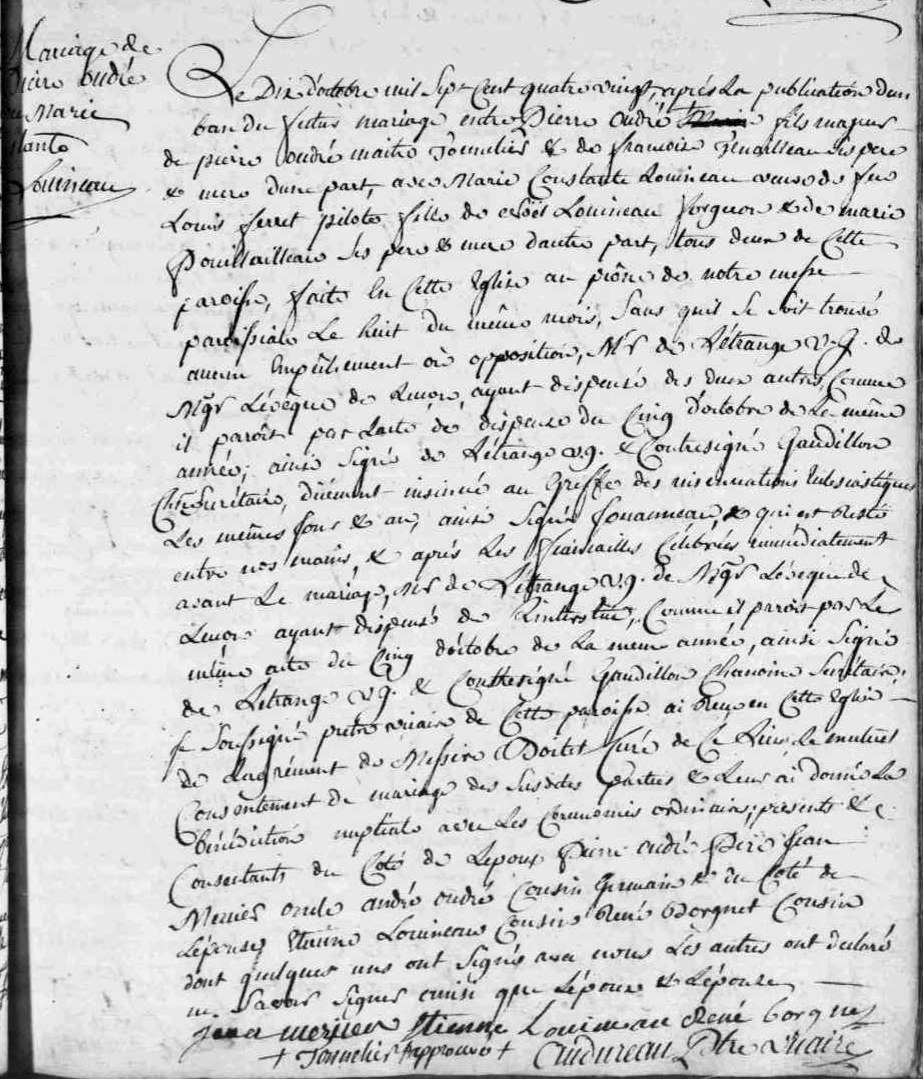 Mariage de
Pierre Oudré
Marie
Louineau
Le Dix d'octobre mil Sept Cent quatre vingt, après La publication d'un
ban du futur mariage entre Pierre oudré fils majeur
de pierre oudré maitre Tonnelier & de francoise Tenailleau ses pere
& mere d'une part, avec Marie Constante Louineau veuve de feu
Louis ferret pilote fille de Louineau & de marie
Pouillailleau ses pere & mere d'autre part, tous deux de Cette
paroisse, faite En Cette Eglise au prône de notre messe
paroissiale Le huit du même mois, Sans qu'il Se Soit trouvé
aucun Empêchement où opposition, Mr de Létrange v.g. de
Mgr L'évêque de Luçon, ayant dispensé des deux autres, Comme
il paroît par L'acte de dispense du Cinq d'octobre de La même
année, ainsi Signé de Létrange v.g. & Contresigné Gaudillon
Ch. Secrétaire, duëment insinué au Greffe des insinuations Eclésiastiques
Les mêmes jour & an, ainsi Signé Jouanneau, & qui est Resté
entre nos mains, & après Les fiancailles Célébrées immédiatement
avant Le mariage, Mr de Létrange v.g. de Mgr L'évêque de
Luçon ayant dispensé de L'interstice, Comme il paroît par Le
même acte du Cinq d'octobre de La meme année, ainsi Signé
de Létrange v.g. & Contresigné Gaudillon Chanoine Secrétaire,
je Soussigné pretre vicaire de Cette paroisse ai Reçu en Cette Eglise
de L'agrément de Messire Curé de Ce Lieu Le mutuel
Consentement de mariage des Susdites parties & Leur ai donné La
bénédiction nuptiale avec Les Cérémonies ordinaires, presents &
Consentants du Coté de L'epoux Pierre oudré Père Jean
Mercier oncle andré oudré Cousin Germain & du Coté de
L'épouse Etienne Louineau Cousin René Borgnet Cousin
dont quelques uns ont Signés avec nous Les autres ont declaré
ne Savoir Signer ainsi que L'époux & L'épouse
jean mersier Etienne Louineau René borgnet
+ Tonnelier approuvé + Audureau Ptre vicaire